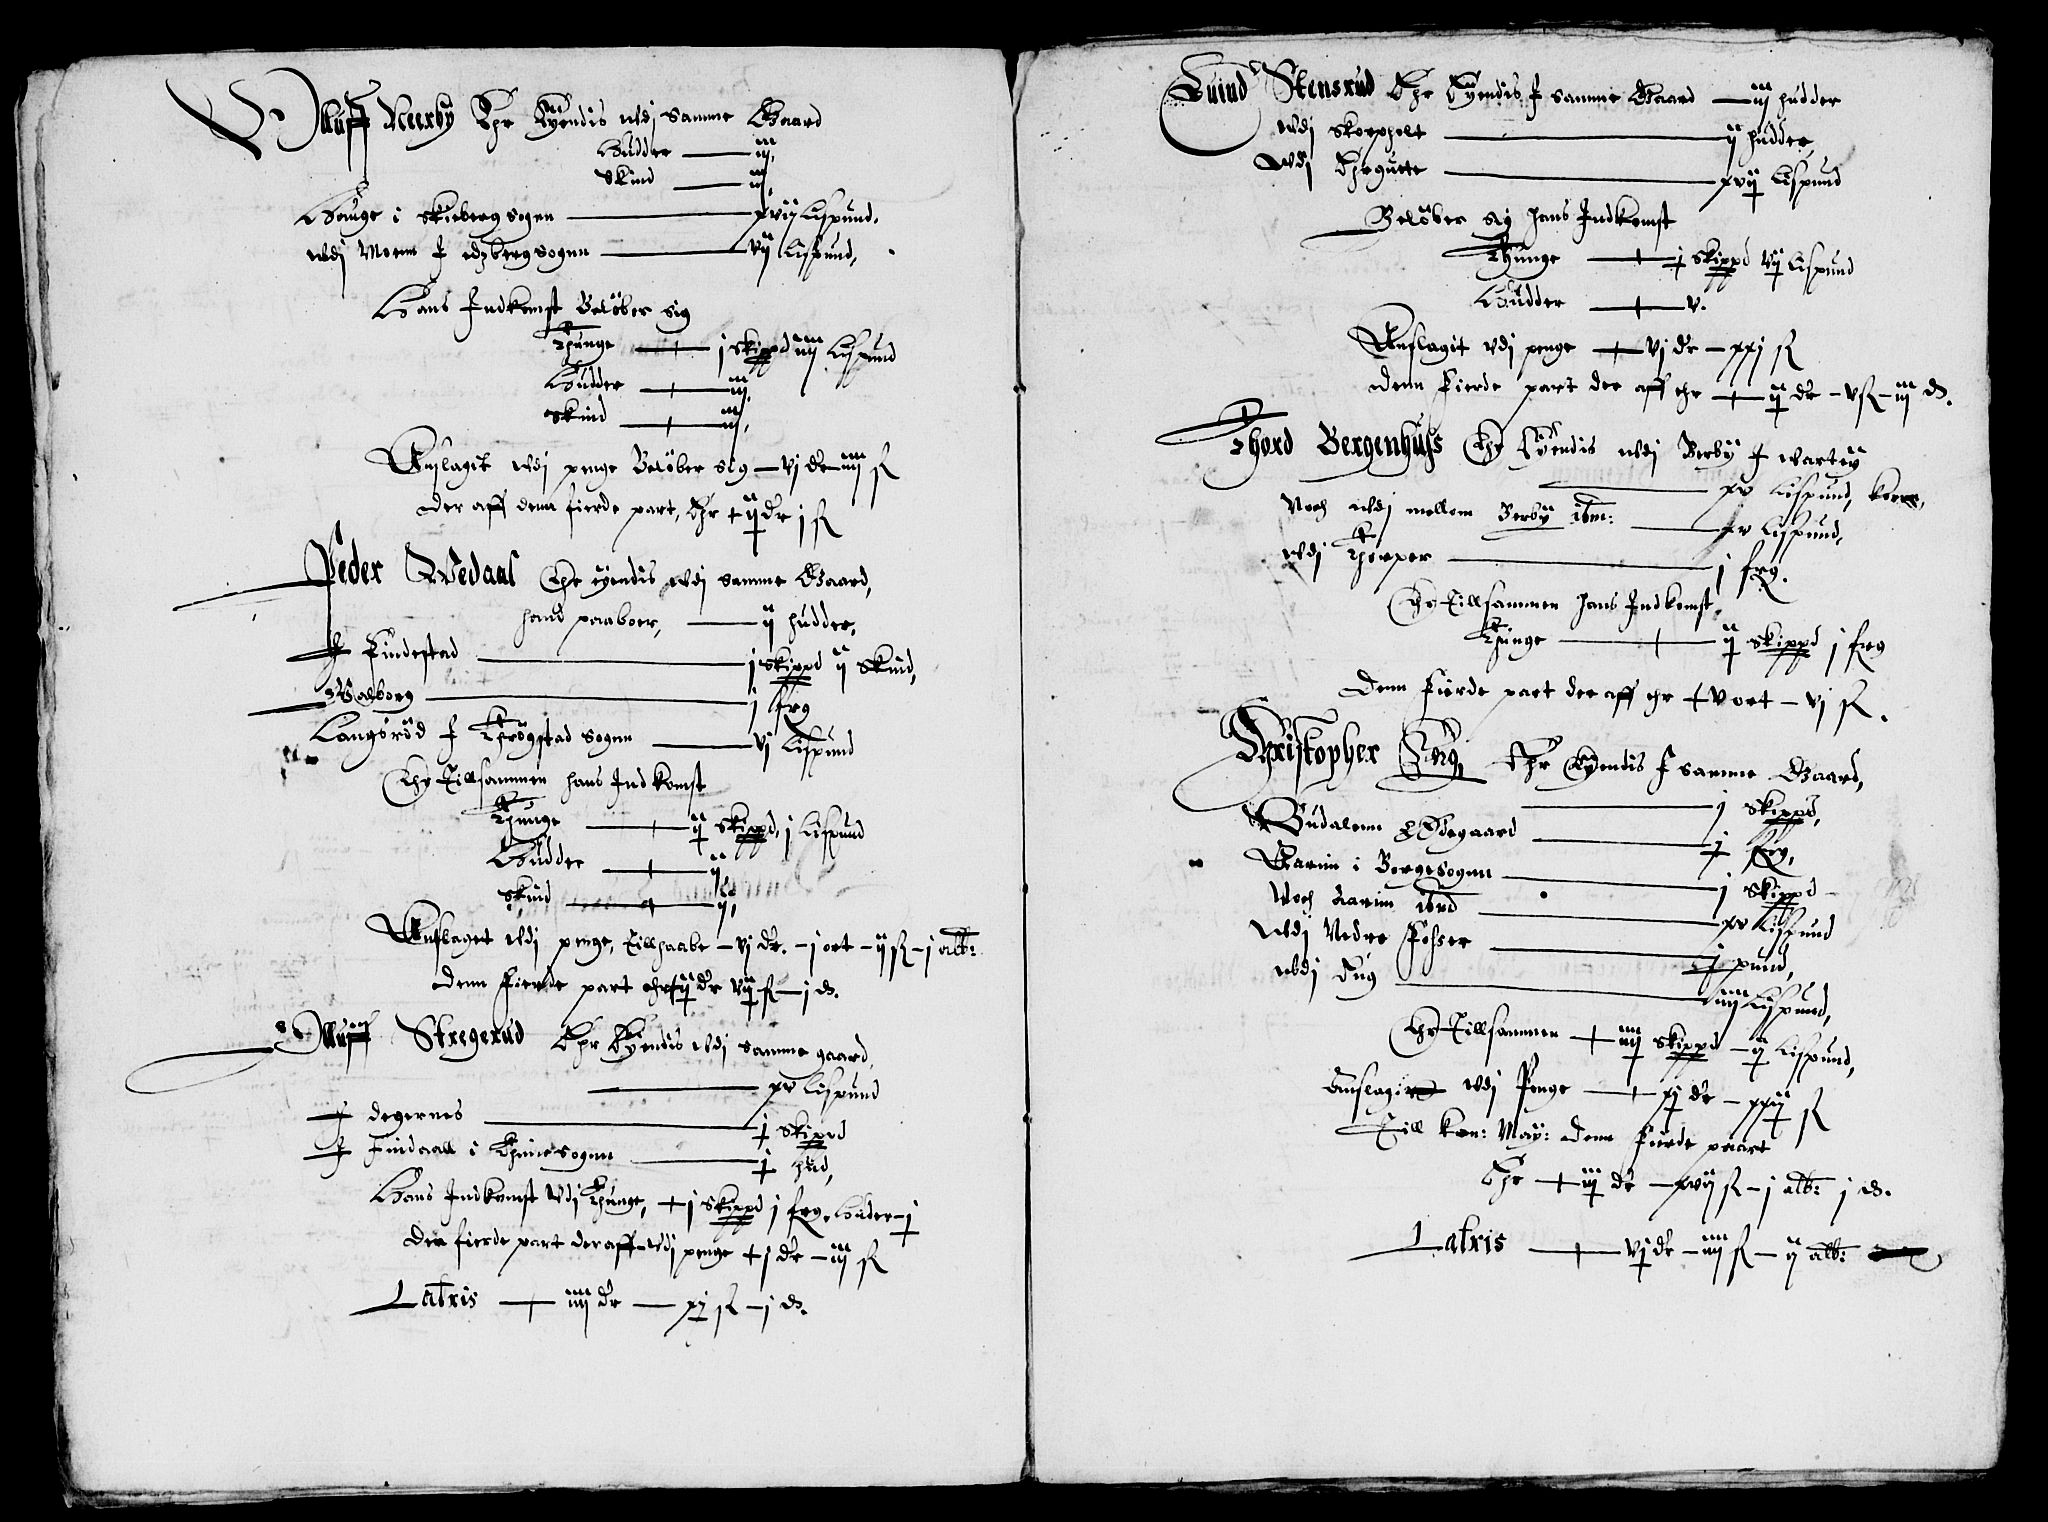 Olluff Neerby Ehr Eyendis udj samme Gaard
Hudder — iij,
Skind — iij,
Houge i Skieberg sogen — xvij Lispund,
udj Moenn J Edzberg sogenn — vij Lispund,
Hans Indkomst Beløber sig
Thunge — j Skippd iiij Lispund
Hudder — iij,
Skind — iij,
Anslagit udj penge Beløber sig — vj dr iiij ß
der aff denn fierde part, Ehr ij dr j ß
Peder Wedaal Ehr eyendis udj samme Gaard,
hand paaboer, — ij hudder,
J Findestad — j Skippd ij Skind,
Walborg — j frg
Langsrød J Thrøgstad sogenn — vj Lispund
Ehr Tillsammen hans Indkomst
Thunge — ij Skippd, j Lispund
Hudder — ij
Skind — ij,
Anslaget udj penge, Tillhaabe — vj dr. — j ort — ij ß — j alb:
denn Fierde part ehr ij dr vij ß — j d.
Olluff Stregerud Ehr Eyendis udj samme gaard,
— xv Lispund
J degernes — j Skippd
J Findaall i Thune sogenn — j hud,
Hans Indkomst udj Thunge, j Skippd j frg, Huder — j
Den fierde part der aff udj penge j dr — iij ß
Latris — iiij dr — xj ß — j d.
Euind Stensrud Ehr Eyendis J samme Gaard — iij hudder
udj Skorpholt — ij hudder,
udj — xvij Lispund
Beløber sig hans Indkomst
Thunge — j Skippd vij Lispund
Hudder — v.
Anslagit udj penge — vj dr — xxj ß
denn Fierde part der aff ehr — ij dr — v ß — iij d.
Thord Bergenhuss Ehr Eyendis udj Berby J
— xv Lispund,
Noch udj mellom Berby ibm: — xv Lispund,
udj Thorper — j frg.
Ehr Tillsammen hans Indkomst,
Thunge — ij Skippd j frg
Denn Fierde part der aff ehr v ort — vj ß.
Christopher Ehr Eyendis J samme Gaard,
— j Skippd,
Gudalenn Ødegaard — j frg,
i Borgesogenn — j Skippd
Noch ibid — xv Lispund
udj Nedre Fosser — j pund,
udj — iiij Lispund,
Ehr Tillsammen — iiij Skippd — ij Lispund,
Anslagit udj Penge — xj dr — xxij ß
Till Kon: May: denn Fierde paart
Ehr — iij dr — xvij ß — j alb: j d.
Latris — vj dr — iiij ß — ij alb: